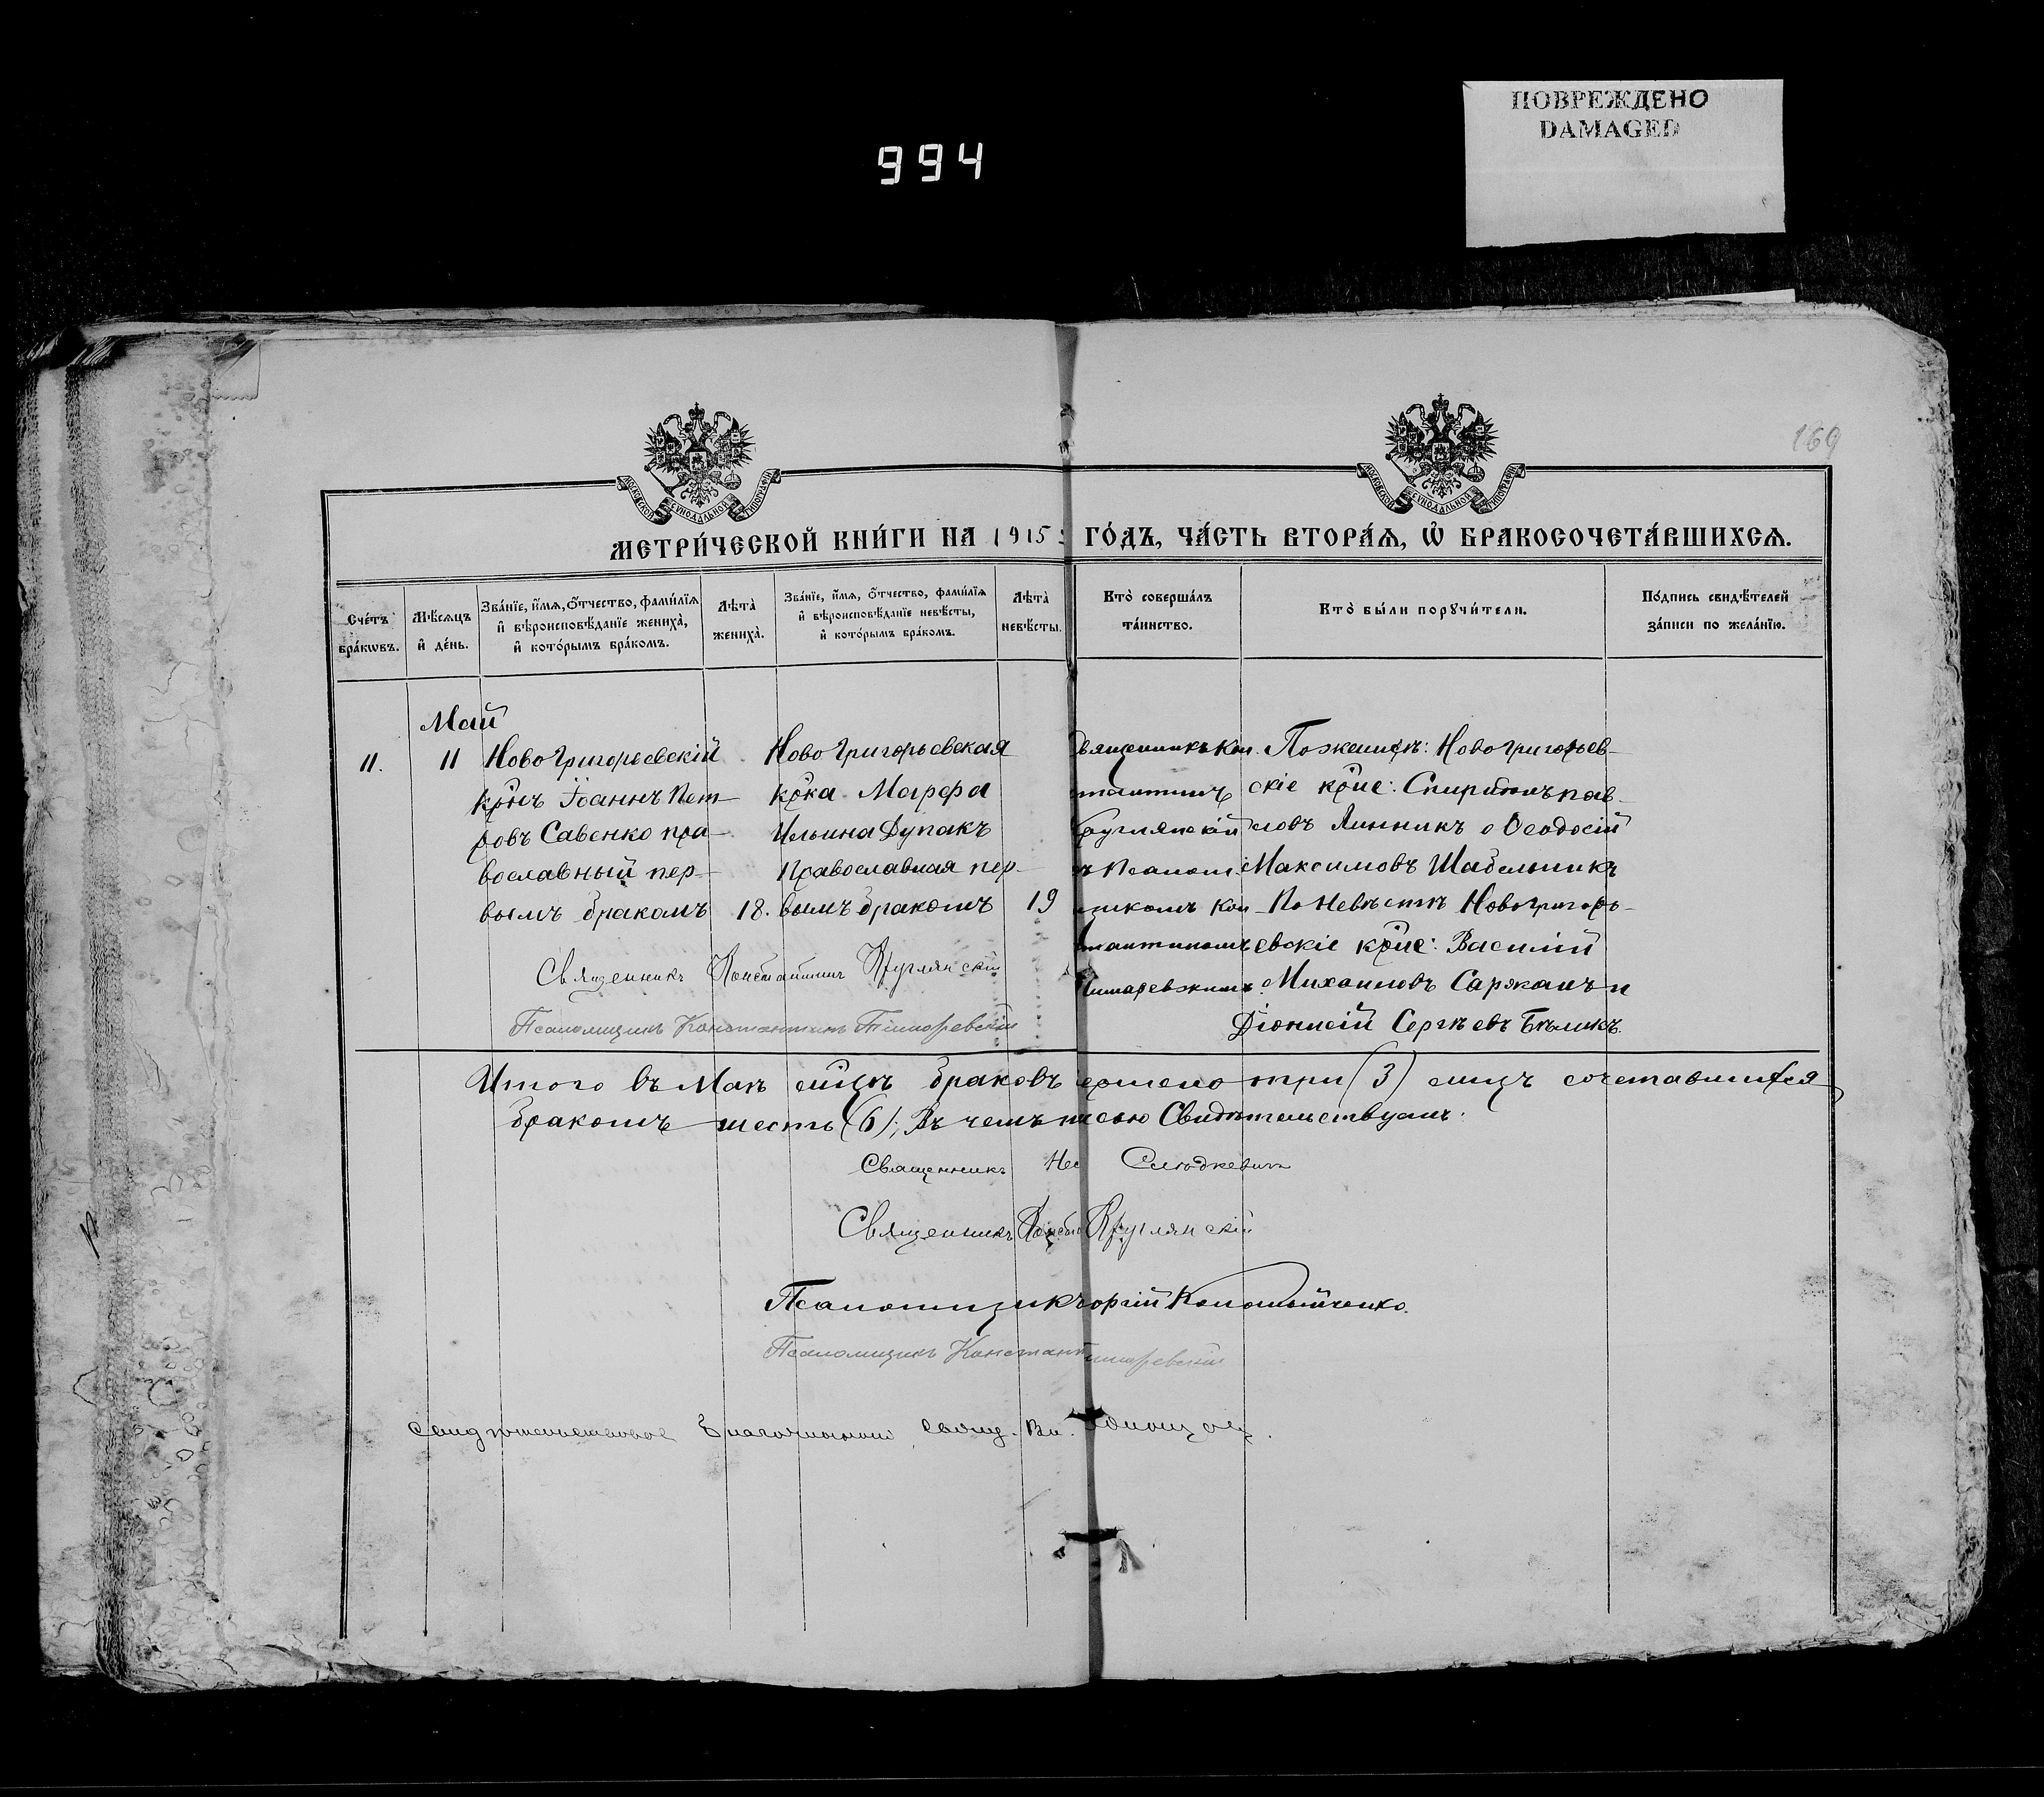 ПОВРЕЖДЕНО
DAMAGED
994
169
МОСКОВСКОЙ СѴНОДАЛЬНОЙ ТИПОГРАФІИ
МОСКОВСКОЙ СѴНОДАЛЬНОЙ ТИПОГРАФІИ
МЕТРИ́ЧЕСКОЙ КНИ́ГИ НА 1915 ГО́ДЪ, ЧА́СТЬ ВТОРА́Ѧ, Ѽ БРАКОСОЧЕТА́ВШИХСѦ.
Сче́тъ бра́кѡвъ.
Мѣ́сѧцъ и҆ де́нь.
Зва́нїе, и҆́мѧ, ѻ҆́тчество, фами́лїѧ и҆ вѣроисповѣ́данїе жениха̀, и҆ кото́рымъ бра́комъ.
Лѣта̀ жениха̀.
Зва́нїе, и҆́мѧ, ѻ҆́тчество, фами́лїѧ и҆ вѣроисповѣ́данїе невѣ́сты, и҆ кото́рымъ бра́комъ.
Лѣта̀ невѣ́сты.
Кто̀ соверша́лъ та́инство.
Кто̀ бы́ли порꙋчи́тели.
По́дпись свидѣ́телей за́писи по жела́нїю.
Май
11.
11
НовоГригорьевскій
крнъ Іоаннъ Пет-
ровъ Савенко пра-
вославный пер-
вымъ бракомъ
18.
НовоГригорьевская
крка Марфа
Ильина Дупакъ
Православная пер-
вымъ бракомъ
19
вященникъ Кон
стантинъ
Круглянскій
ъ Псалом
щикомъ Кон-
стантиномъ
Тимаревскимъ
По женихѣ: Новогригорьев-
скіе крне: Спиридонъ пав-
ловъ Линникъ о Ѳеодосій
Максимовъ Шабельникъ
По Невѣстѣ Новогригорь-
евскіе крне: Василій
Михаиловъ Саржанъ и
Діонисій Сергѣевъ Бѣликъ.
Священникъ Константинъ Круглянскій
Псаломщикъ Константинъ Тимаревскій
Итого въ Маѣ мцѣ браковъ ершено три (3) лицъ сочетавшихся
бракомъ шесть (6); Въ чемъ и свидѣтельствуемъ.
Священникъ Слюдкевичъ
Священникъ Конст Круглянскій
Псаломщикъ оргій Коломийченко.
Псаломщикъ Констант имаревскій
Свидѣтельствовалъ Благочинный, свящ. Вл.